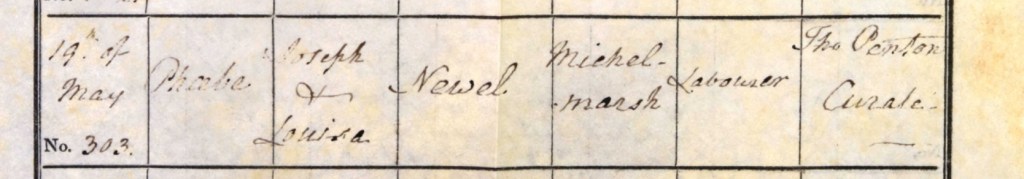 19th. of
May
No. 303.
Phœbe
Joseph
&
Louisa
Newel
Michel-
-marsh
Labourer
Tho Penton
Curate